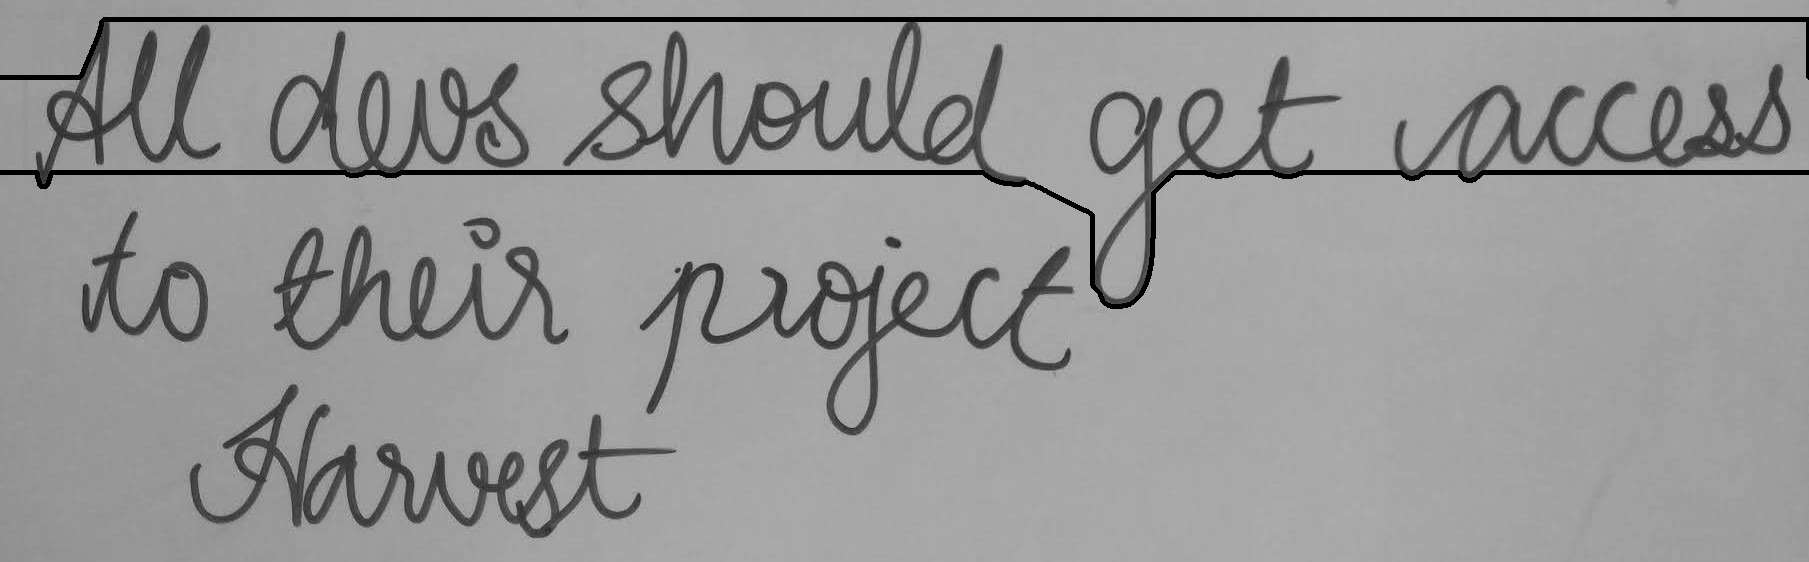 All devs should get access
to their project
Harvest